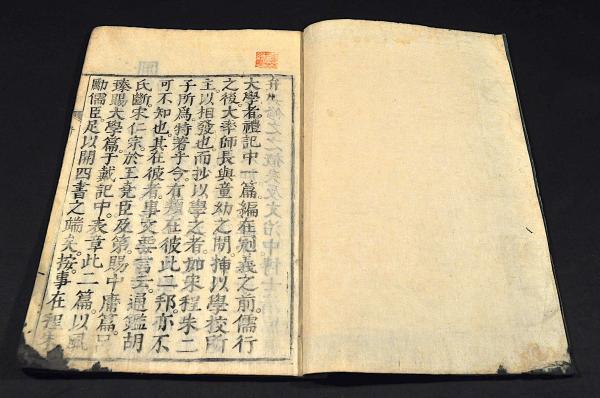 大學者禮記中一篇編在冠義之前儒行
之後大率師長與童幼之間挿以學校所
主以相發也而抄以學之者如宋程朱二
子所爲特著乎今有類在彼此二邦亦不
可不知也其在彼者事文要言云通鑑胡
氏斷宋仁宗於王堯臣及第賜中庸篇呂
臻賜大學篇于戴記中表章此二篇以風
勵儒臣足以開四書之端矣按事在程朱